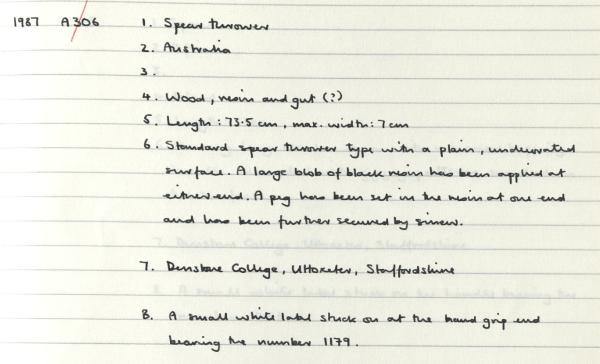 1987 A306 1. Spear thrower
2. Australia
3.
4. Wood, resin and gut (?)
5. Length : 73.5 cm, max. width : 7 cm
6. Standard spear thrower type with a plain, undecorated
surface. A large blob of black resin has been applied at
either end. A peg has been set in the resin at one end
and has been further secured by sinew.
7. Denstone College, Uttoxeter, Staffordshire
8. A small white label stuck on at the hand grip end
bearing the number 1179.